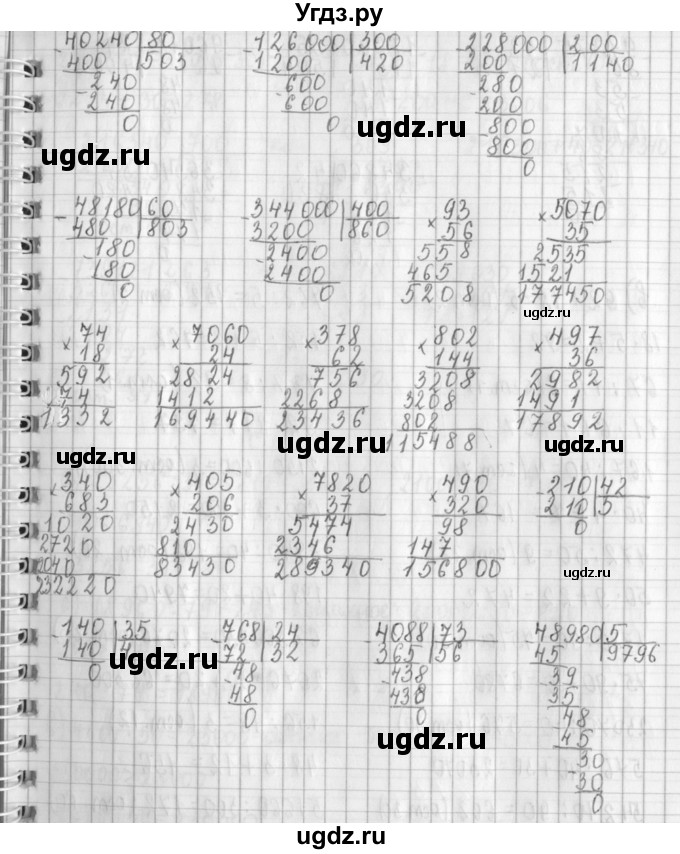 Угдз.ру
40240|80 126000|300 228000|200
400 503 1200 420 200 1140
240 600 280
240 600 200
0 0 800
ugdz.ru ugdz.ru 800
0
48180|60 344000|400 × 93 × 5070
480 803 3200 860 56 35
180 2400 558 2535
180 2400 465 1521
0 0 5208 177450
ugdz.ru
× 74 × 7060 × 378 × 802 × 497
18 24 62 144 36
592 2824 756 3208 2982
74 1412 2268 3208 1491
1332 169440 23436 802 17892
115488
ugdz.ru ugdz.ru ugdz.ru
× 340 × 405 × 7820 × 490 210|42
683 206 37 320 210 5
1020 2430 5474 98 0
2720 810 2346 147
2040 83430 289340 156800
232220 ugdz.ru
140|35 768|24 4088|73 48980|5
140 4 72 32 365 56 45 9796
0 48 438 39
48 438 35
0 0 48
45
30
30
0
ugdz.ru ugdz.ru
ugdz.ru